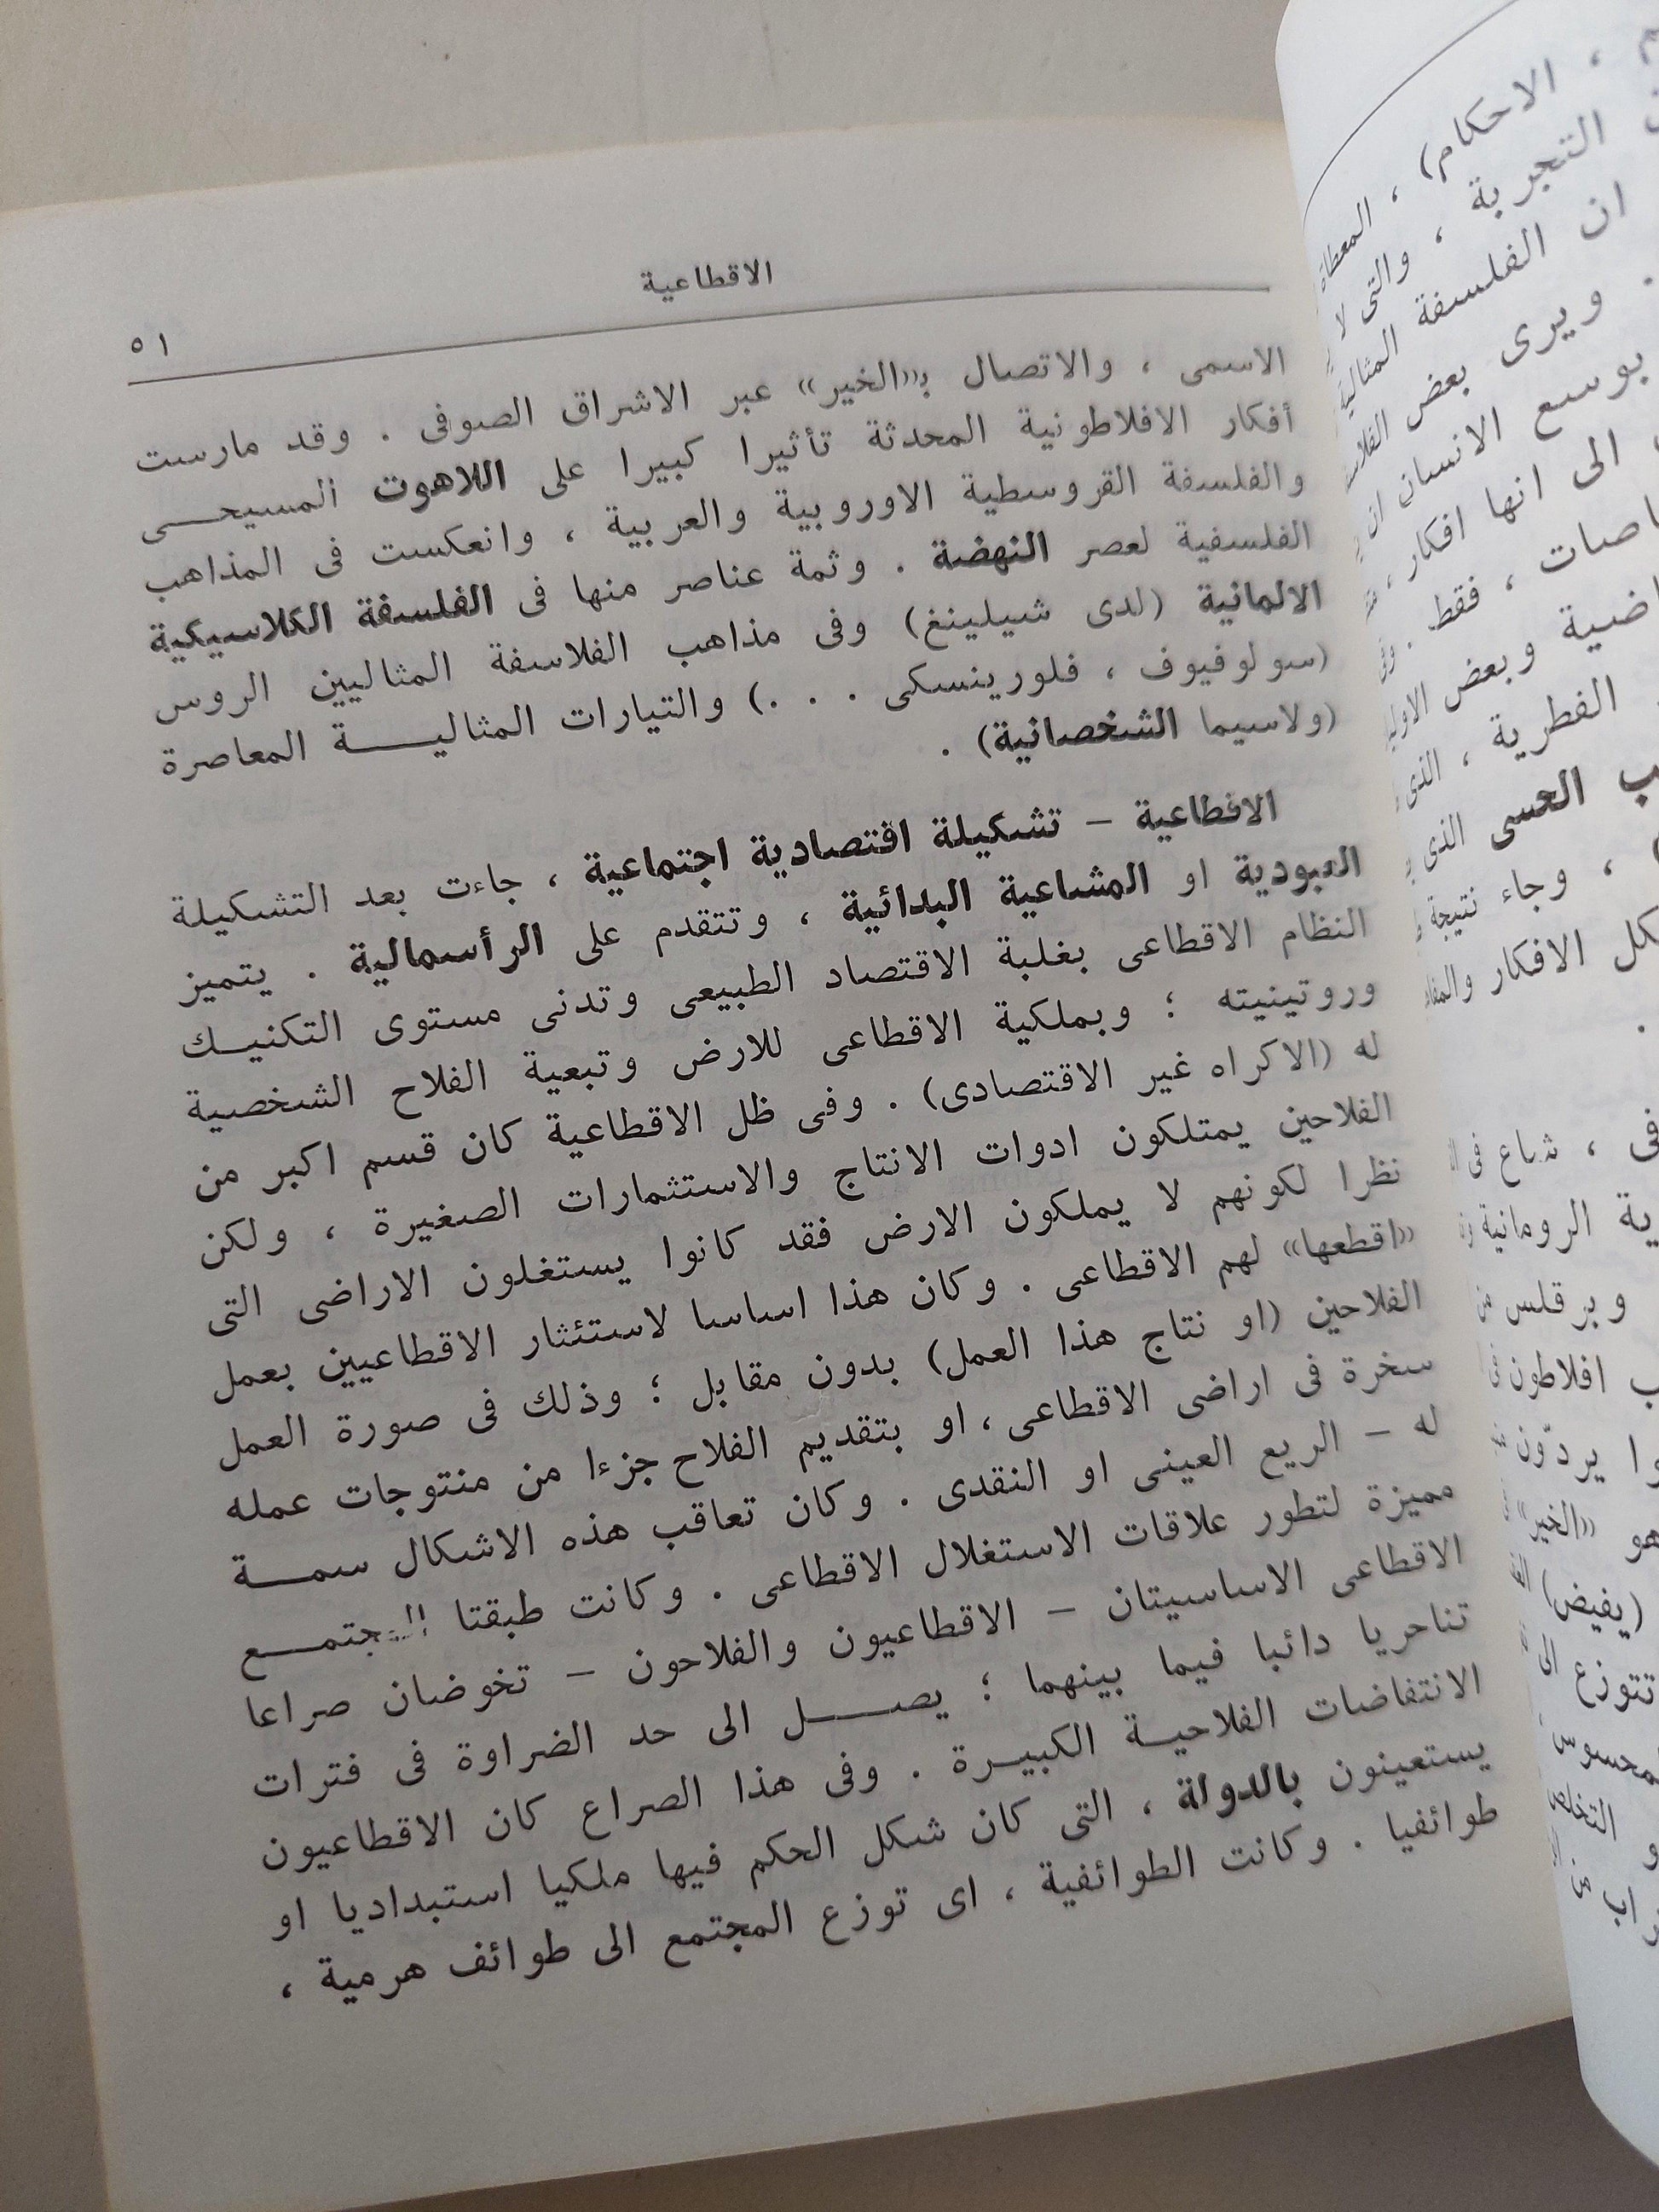 الاقطاعية
٥١
الاسمى ، والاتصال بـ«الخير» عبر الاشراق الصوفى . وقد مارست
أفكار الافلاطونية المحدثة تأثيرا كبيرا على اللاهوت المسيحـــى
والفلسفة القروسطية الاوروبية والعربية ، وانعكست فى المذاهب
الفلسفية لعصر النهضة . وثمة عناصر منها فى الفلسفة الكلاسيكية
الالمانية (لدى شيلينغ) وفى مذاهب الفلاسفة المثاليين الروس
(سولوفيوف ، فلورينسكى . . .) والتيارات المثاليـــــة المعاصرة
(ولاسيما الشخصانية) .
الاقطاعية – تشكيلة اقتصادية اجتماعية ، جاءت بعد التشكيلة
العبودية او المشاعية البدائية ، وتتقدم على الرأسمالية . يتميز
النظام الاقطاعى بغلبة الاقتصاد الطبيعى وتدنى مستوى التكنيـك
وروتينيته ؛ وبملكية الاقطاعى للارض وتبعية الفلاح الشخصية
له (الاكراه غير الاقتصادى) . وفى ظل الاقطاعية كان قسم اكبر من
الفلاحين يمتلكون ادوات الانتاج والاستثمارات الصغيرة ، ولكن
نظرا لكونهم لا يملكون الارض فقد كانوا يستغلون الاراضى التى
«اقطعها» لهم الاقطاعى . وكان هذا اساسا لاستئثار الاقطاعيين بعمل
الفلاحين (او نتاج هذا العمل) بدون مقابل ؛ وذلك فى صورة العمل
سخرة فى اراضى الاقطاعى ، او بتقديم الفلاح جزءا من منتوجات عمله
له – الريع العينى او النقدى . وكان تعاقب هذه الاشكال سمـــة
مميزة لتطور علاقات الاستغلال الاقطاعى . وكانت طبقتا المجتمـــع
الاقطاعى الاساسيتان – الاقطاعيون والفلاحون – تخوضان صراعا
تناحريا دائبا فيما بينهما ؛ يصـــــل الى حد الضراوة فى فترات
الانتفاضات الفلاحيـة الكبيـرة . وفى هذا الصراع كان الاقطاعيون
يستعينون بالدولة ، التى كان شكل الحكم فيها ملكيا استبداديا او
طوائفيا . وكانت الطوائفية ، اى توزع المجتمع الى طوائف هرمية ،
، الاحكام) ،
التجربة ، والتى لا
ان الفلسفة المثالية
. ويرى بعض
بوسع الانسان ان
الى انها افكار ،
، فقط . وفى
وبعض
الفطرية ، الذى
الحسى الذى
، وجاء نتيجة
كل الافكار
.
فى ، شاع فى
الرومانية
وبرقلس من
افلاطون فى
يردّون
هو «الخير»
(يفيض)
تتوزع الى
التخلص
من